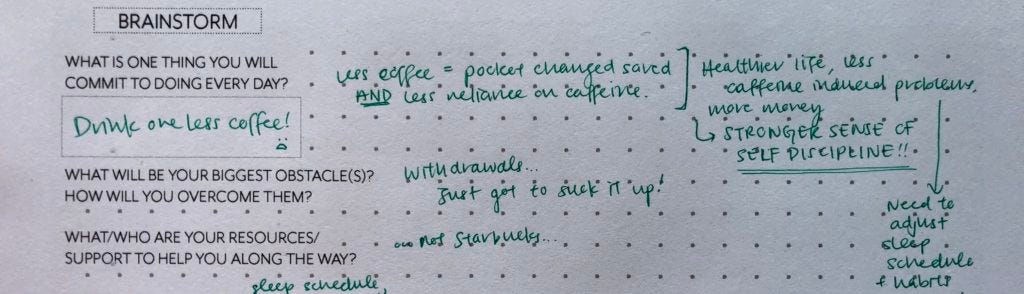 BRAINSTORM
WHAT IS ONE THING YOU WILL
COMMIT TO DOING EVERY DAY?
Drink one less coffee!
less coffee = pocket changed saved
AND less reliance on caffeine.
Healthier life, less
caffeine induced problems,
more money
↳ STRONGER SENSE OF
SELF DISCIPLINE!!
WHAT WILL BE YOUR BIGGEST OBSTACLE(S)?
HOW WILL YOU OVERCOME THEM?
Withdrawals...
Just got to suck it up!
Need to
adjust
sleep
schedule
+ habits
WHAT/WHO ARE YOUR RESOURCES/
SUPPORT TO HELP YOU ALONG THE WAY?
... not Starbucks...
sleep schedule,